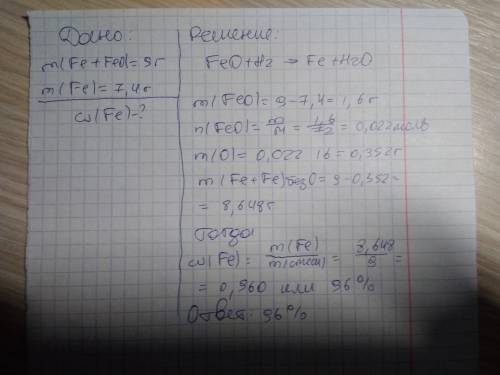 Дано:
m(Fe+FeO)=9г
m(Fe)=7,4г
ω(Fe)-?
Решение:
FeO+H2 → Fe+H2O
m(FeO)=9-7,4=1,6г
n(FeO)=m/M=1,6/72=0,022моль
m(O)=0,022 16=0,352г
m(Fe+Fe)без O=9-0,352=
=8,648г
тогда
ω(Fe)=m(Fe)/m(смеси)=8,648/9=
=0,960 или 96%
Ответ: 96%